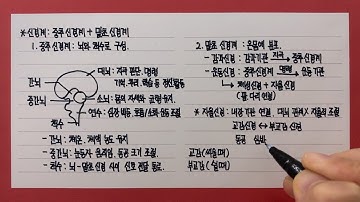 * 신경계 : 중추 신경계 + 말초 신경계
1. 중추 신경계 : 뇌와 척수로 구성.
대뇌 : 자극 판단, 명령
간뇌
중간뇌
소뇌 : 몸의 자세와 균형 유지.
연수 : 심장 박동, 호흡, 소화 운동 조절
척수
- 간뇌 : 체온, 체액 농도 유지
- 중간뇌 : 눈동자 움직임, 동공 크기 조절
- 척수 : 뇌 - 말초 신경 사이 신호 전달 통로.
2. 말초 신경계 : 온몸에 분포.
- 감각 신경 : 감각 기관 자극 → 중추 신경계
- 운동 신경 : 중추 신경계 명령 → 운동 기관
체성 신경 + 자율 신경
* 자율 신경 : 내장 기관 연결. 대뇌 관여 X 자율적 조절
교감 신경 ↔ 부교감 신경
동공 심박
교감
부교감